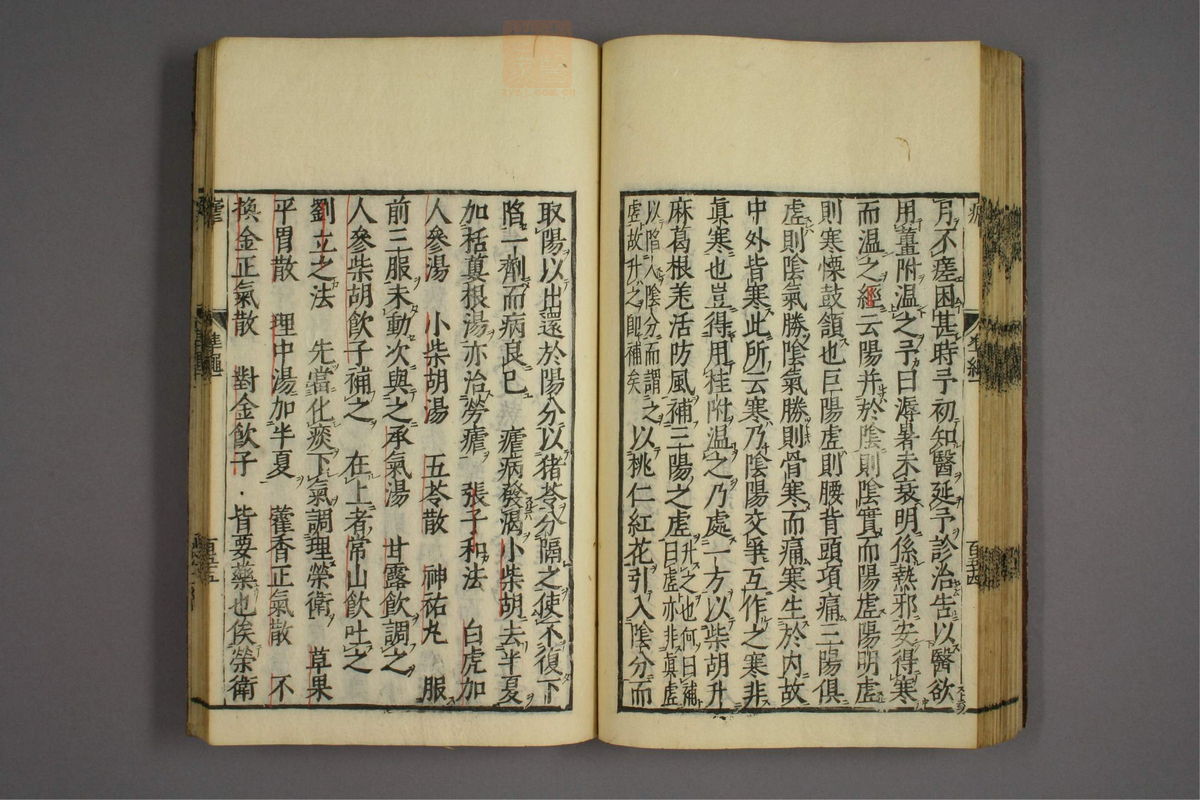 月不瘥困甚時予初知醫延予診治告以醫欲
用薑附溫之予曰溽暑未衰明係熱邪安得寒
而溫之經云陽并於陰則陰實而陽虛陽明虛
則寒慄鼓頷也巨陽虛則腰背頭項痛三陽俱
虛則陰氣勝陰氣勝則骨寒而痛寒生於內故
中外皆寒此所云寒乃陰陽交爭互作之寒非
眞寒也豈得用桂附溫之乃處一方以柴胡升
麻葛根羌活防風補三陽之虛升之也何曰補曰虛亦非眞虛
以陷入陰分而謂之虛故升之卽補矣以桃仁紅花引入陰分而
取陽以出還於陽分以猪苓分隔之使不復下
陷一劑而病良已 瘧病發渴小柴胡去半夏
加栝蔞根湯亦治勞瘧 張子和法 白虎加
人參湯 小柴胡湯 五苓散 神祐丸 服
前三服未動次與之承氣湯 甘露飲調之
人參柴胡飲子補之 在上者常山飲吐之
劉立之法 先當化痰下氣調理榮衛 草果
平胃散 理中湯加半夏 藿香正氣散 不
換金正氣散 對金飲子 皆要藥也俟榮衛
瘧
準繩